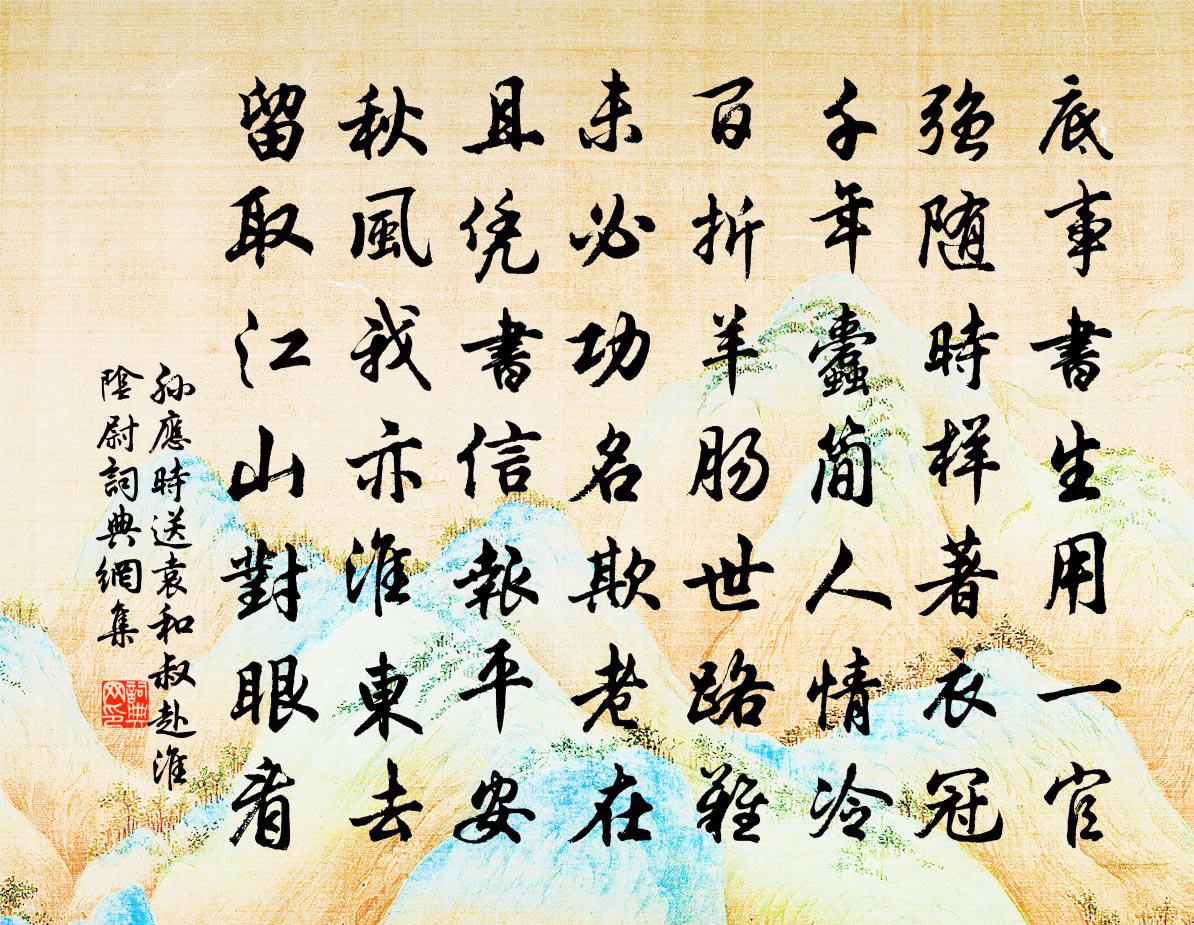 底事書生用一官
強随時样著衣冠
千年蠹简人情冷
百折羊肠世路難
未必功名欺老在
且凭書信報平安
秋風我亦淮東去
留取江山對眼看
孫應時送袁和叔赴淮
陰尉詞典網集
詞典网印